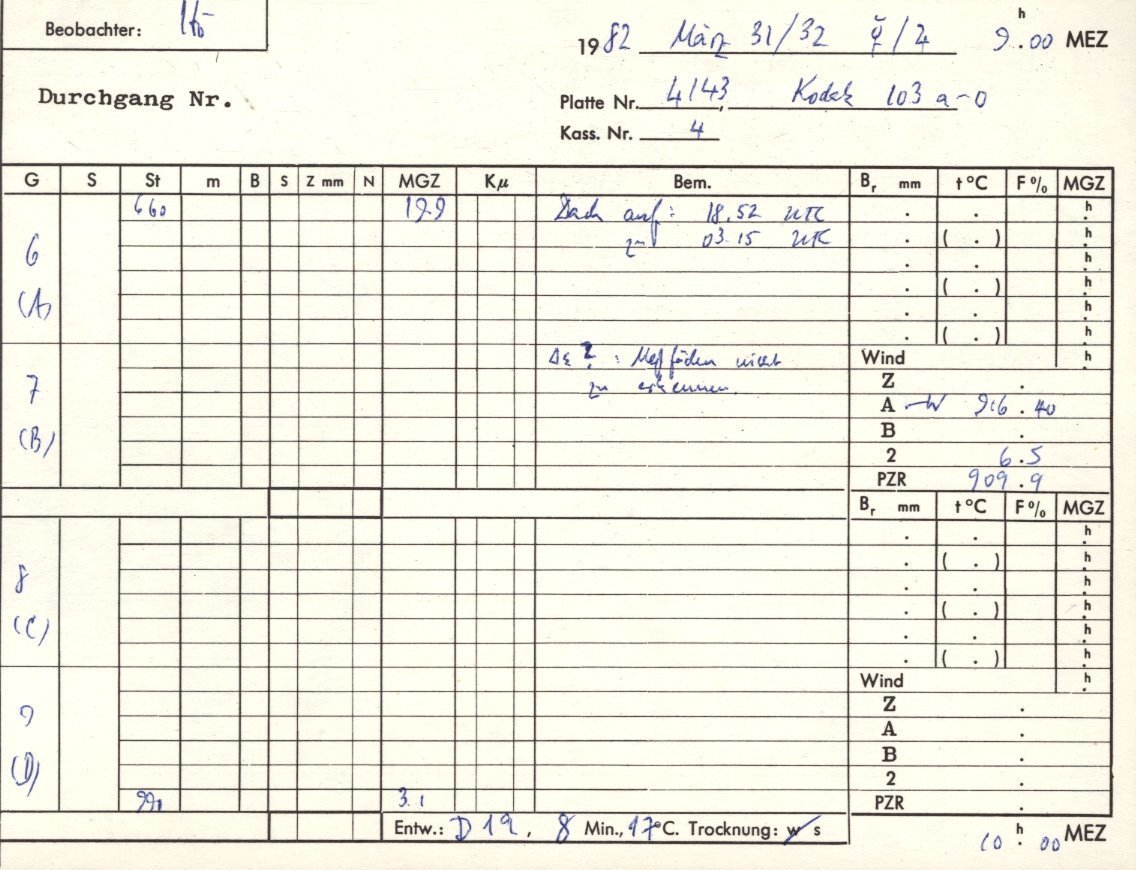 Beobachter: Itō
1982 März 31/32 ☿/♃ 9.h00 MEZ
Durchgang Nr.
Platte Nr. 4143, Kodak 103 a-0
Kass. Nr. 4
G S St m B S Z mm N MGZ Kμ Bem. Br mm t°C F% MGZ
660 19.9 Dach auf: 18.52 UTC . . h.
6 zu 03.15 UTC . ( . ) h.
. . h.
(A) . ( . ) h.
. . h.
. ( . ) h.
Δε ? : Meßfäden nicht Wind h.
7 zu erkennen. Z .
A 96.40
(B) B .
2 6.5
PZR 909.9
Br mm t°C F% MGZ
. . h.
8 . ( . ) h.
. . h.
(C) . ( . ) h.
. . h.
. ( . ) h.
Wind h.
9 Z .
A .
B .
(D) 2 .
990 3.1 PZR .
Entw.: D 19, 8 Min., 17°C. Trocknung: w s
10 h. 00 MEZ